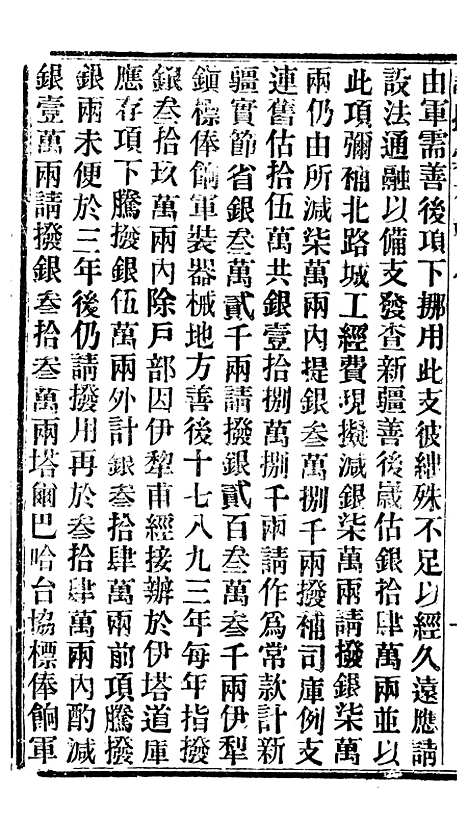 由軍需善後項下挪用此支彼絀殊不足以經久遠應請
設法通融以備支發查新疆善後歲估銀拾肆萬兩並以
此項彌補北路城工經費現擬減銀柒萬兩請撥銀柒萬
兩仍由所減柒萬兩內提銀叁萬捌千兩撥補司庫例支
連舊估拾伍萬共銀壹拾捌萬捌千兩請作爲常款計新
疆實節省銀叁萬貳千兩請撥銀貳百叁萬叁千兩伊犁
鎮標俸餉軍裝器械地方善後十七八九三年每年指撥
銀叁拾玖萬兩內除戶部因伊犁甫經接辦於伊塔道庫
應存項下騰撥銀伍萬兩外計銀叁拾肆萬兩前項騰撥
銀兩未便於三年後仍請撥用再於叁拾肆萬兩內酌減
銀壹萬兩請撥銀叁拾叁萬兩塔爾巴哈台協標俸餉軍